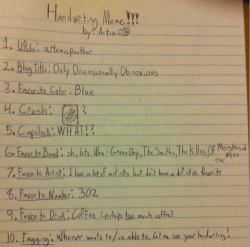 Handwriting Meme!!!
by: Artua
1. URL: attemsparthor
2. Blog Title: Only Occasionally Obnoxious
3. Favourite Color: Blue
4. Crush: ?
5. Capslock: WHAT!?
6. Favorite Band: oh, lots. Uhm - Green Day, The Smiths, The Killers, Of Monsters and Men etc
7. Favorite Artist: I have a lot of artists but don't have a definitive favorite
8. Favorite Number: 302
9. Favorite Drink: Coffee (perhaps too much coffee)
10. Tagging: Whoever wants to/is able to. Let me see your handwriting!